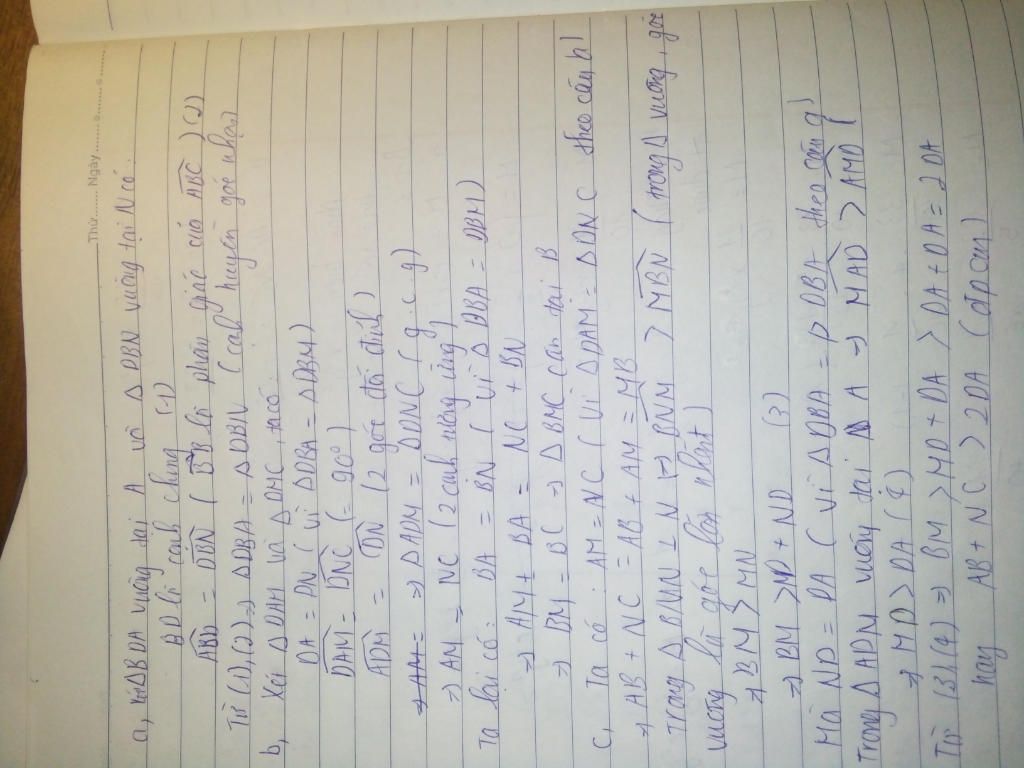 Thứ......... Ngày.........
a, Xét ΔBDA vuông tại A và Δ DBN vuông tại N có.
BD là cạnh chung (1)
ABD = DBN ( BD là phân giác của ABC ) (2)
Từ (1), (2) => ΔDBA = ΔDBN ( cạnh huyền góc nhọn)
b, Xét Δ DAM và Δ DMC, ta có.
DA = DN ( vì ΔDBA = ΔDBM)
DAM = DNC (= 90°)
ADM = DN (2 góc đối đỉnh)
=> ΔADM = ΔDNC ( g. c. g)
=> AM = NC (2 cạnh tương ứng)
Ta lại có: BA = BN ( vì Δ DBA = DBM)
=> AM + BA = NC + BN
=> BM = BC => Δ BMC cân tại B
c, Ta có: AM = NC ( Vì ΔDAM = Δ DNC theo câu b)
=> AB + NC = AB + AM = MB
Trong Δ BMN ⊥ N => BNM > MBN ( trong Δ vuông, góc
vuông là góc lớn nhất)
=> BM > MN
=> BM > MD + ND (3)
Mà ND = DA ( Vì ΔDBA = DBA theo câu a)
Trong Δ ADN vuông tại A => MAD > AMD
=> MD > DA (4)
Từ (3)(4) => BM > MD + DA > DA + DA = 2DA
hay AB + NC > 2DA (đpcm)